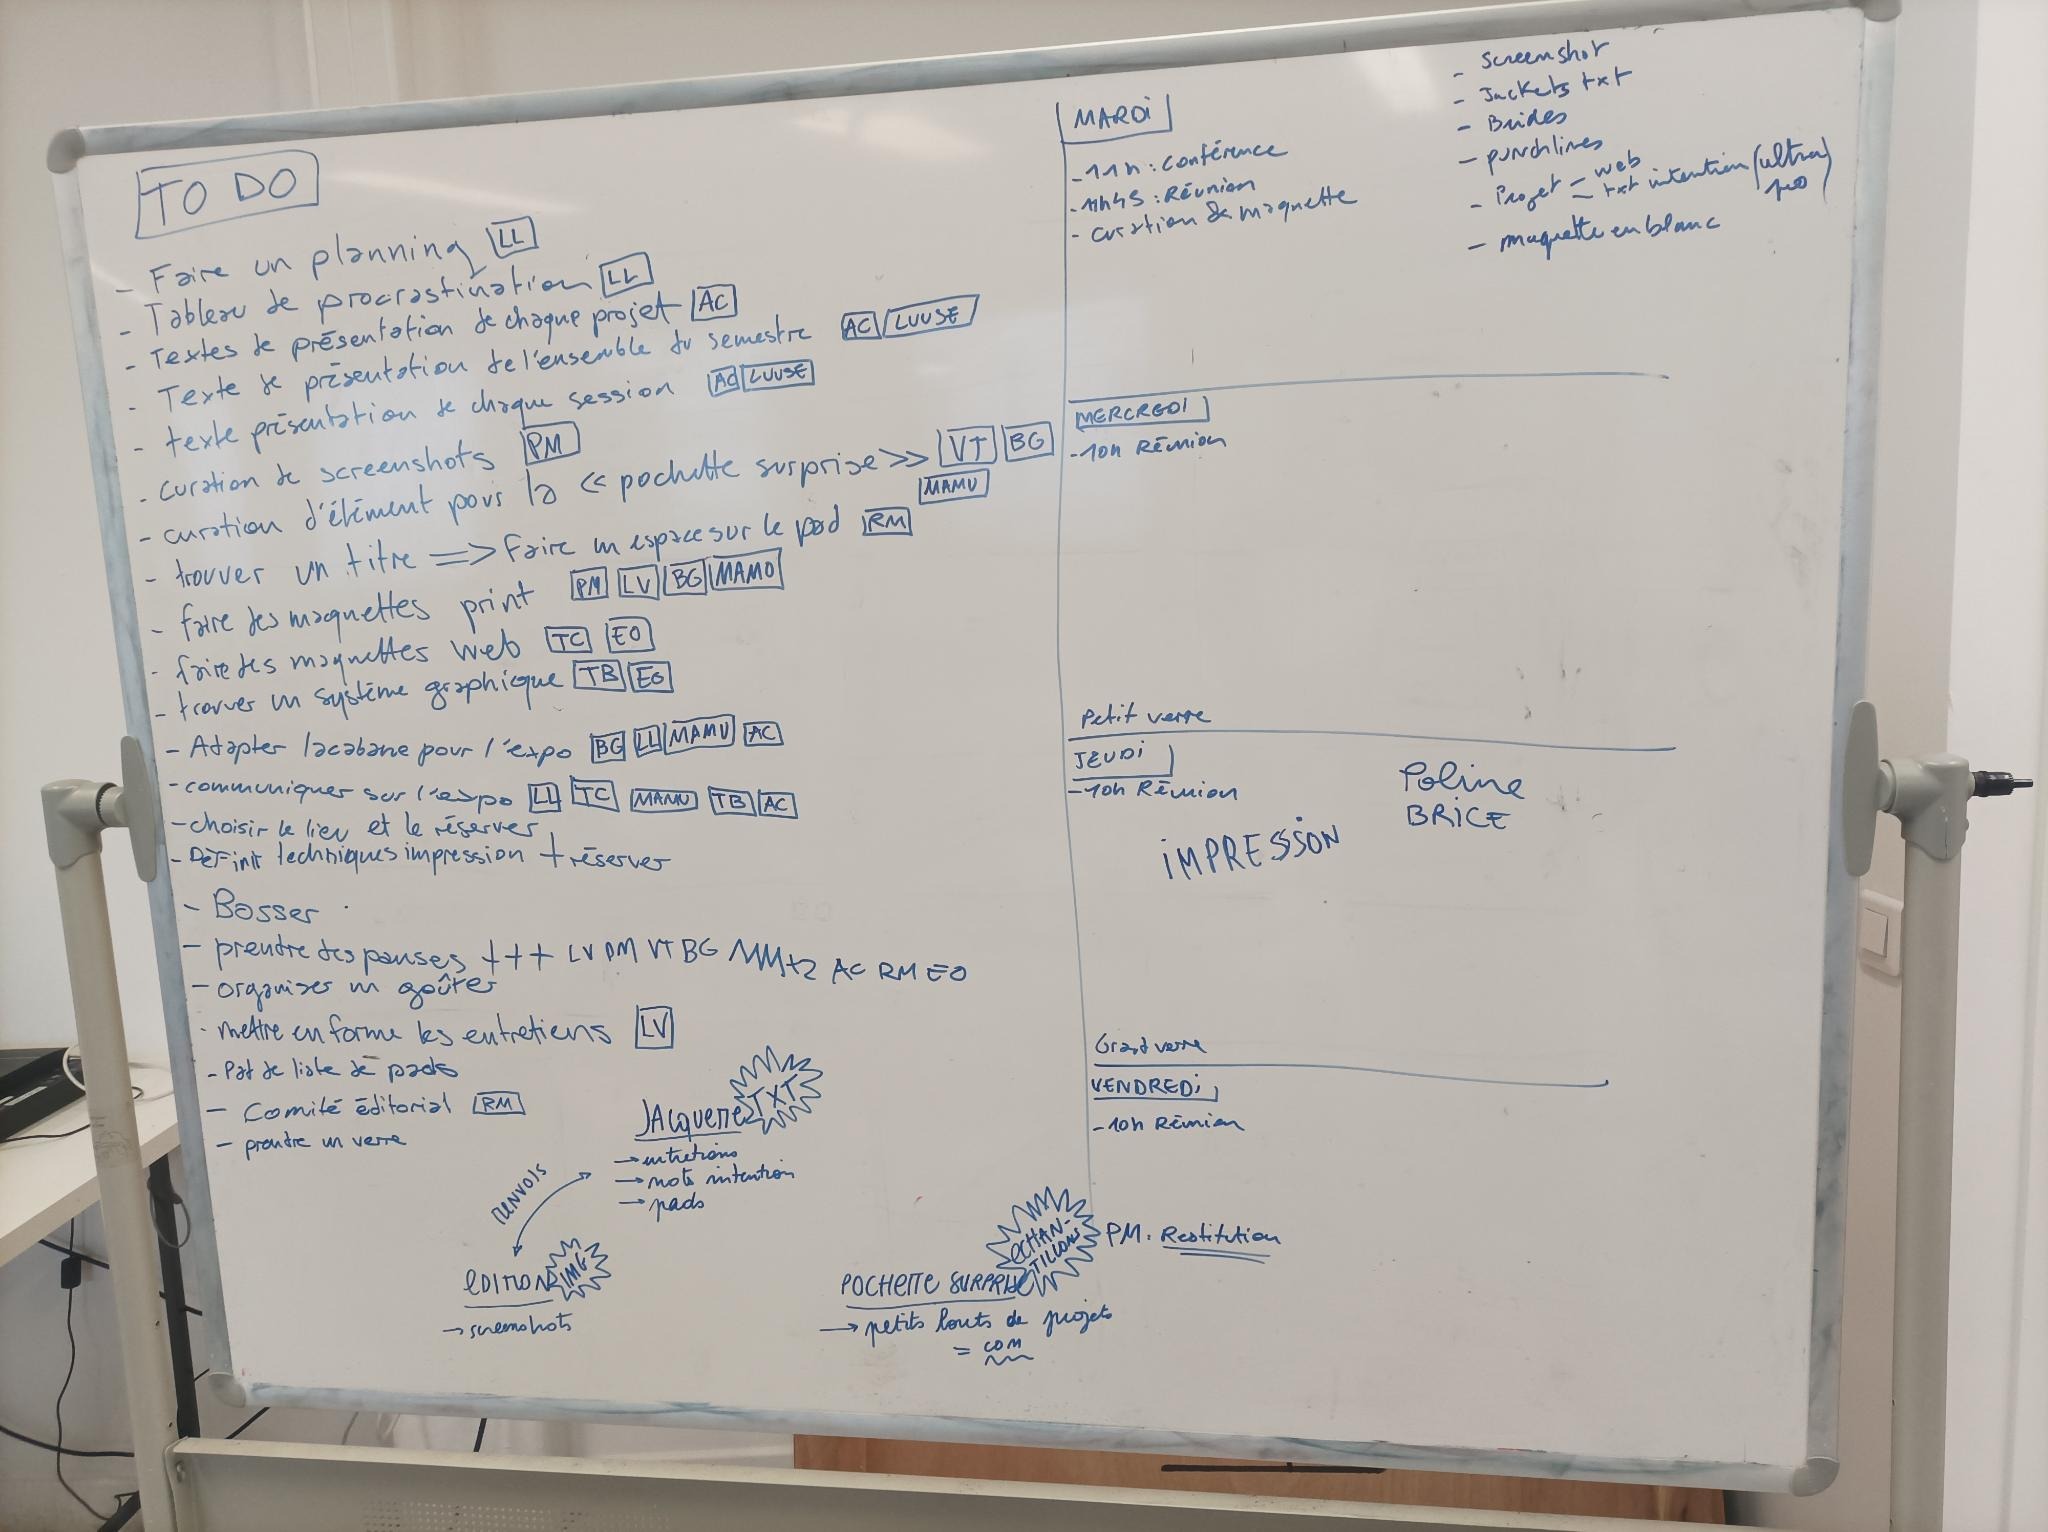 TO DO
- Faire un planning LL
- Tableau de procrastination LL
- Textes de présentation de chaque projet AC
- Texte de présentation de l'ensemble du semestre AC LUUSE
- texte présentation de chaque session AC LUUSE
- curation de screenshots PM
- curation d'élément pour la << pochette surprise >> VT BG
MAMU
- trouver un titre => Faire un espace sur le pad RM
- faire des maquettes print PM LV BG MAMO
- faire des maquettes web TC EO
- trouver un système graphique TB EO
- Adapter lacabane pour l'expo BG LL MAMU AC
- communiquer sur l'expo LL TC MAMU TB AC
- choisir le lieu et le réserver
- Définir techniques impression + réserver
- Bosser
- prendre des pauses +++ LV PM VT BG AC RM EO
- organiser un goûter
- mettre en forme les entretiens LV
- Pad de liste de pads
- Comité éditorial RM
- prendre un verre
JAcquette TXT
→ entretiens
→ note intention
→ pads
RENVOIS
EDITION IMG
→ screenshots
POCHETTE SURPRISE ECHAN-
TILLONS
→ petits bouts de projets
= com
MARDI
- 11h : Conférence
- 11h45 : Réunion
- curation & maquette
- Screenshot
- Jackets txt
- Brides
- punchlines
- Projet - web
- txt intention (ultra
pro)
- maquette en blanc
MERCREDI
- 10h Réunion
Petit verre
JEUDI
- 10h Réunion
Poline
BRICE
IMPRESSION
Grand verre
VENDREDI
- 10h Réunion
PM : Restitution